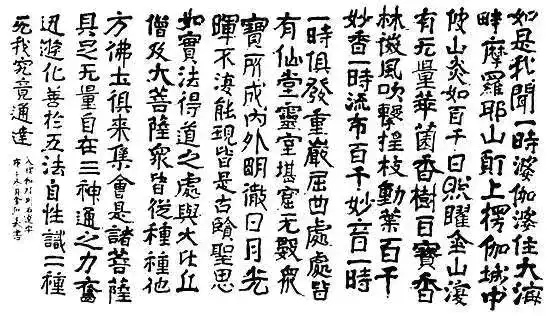 如是我聞一時婆伽婆住大海
畔摩羅耶山頂上楞伽城中
彼山炎如百千日照曜金山復
有无量華園香樹百寶香
林微風吹擊搖枝動葉百千
妙香一時流布百千妙音一時
一時俱發重巖屈曲處處皆
有仙堂靈室堪窟无數衆
寶所成内外明徹日月光
暉不復能現皆是古賢聖思
如實法得道之處與大比丘
僧及大菩薩衆皆從種種他
方佛土俱來集會是諸菩薩
具足无量自在三神通之力奮
迅遊化善於五法自性識二種
无我究竟通達